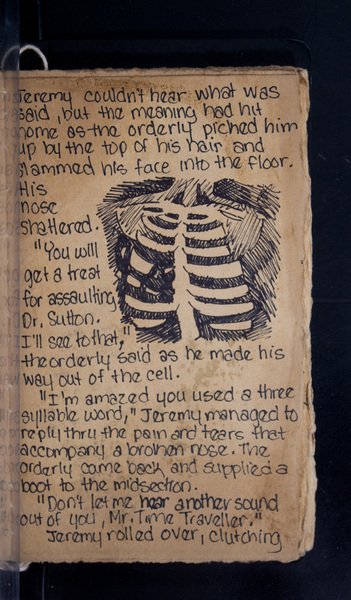 Jeremy couldn't hear what was
said, but the meaning had hit
home as the orderly picked him
up by the top of his hair and
slammed his face into the floor.
His
nose
shattered.
"You will
get a treat
for assaulting
Dr. Sutton.
I'll see to that,"
the orderly said as he made his
way out of the cell.
"I'm amazed you used a three
syllable word," Jeremy managed to
reply thru the pain and tears that
accompany a broken nose. The
orderly came back and supplied a
boot to the midsection.
"Don't let me hear another sound
out of you, Mr. Time Traveller."
Jeremy rolled over, clutching